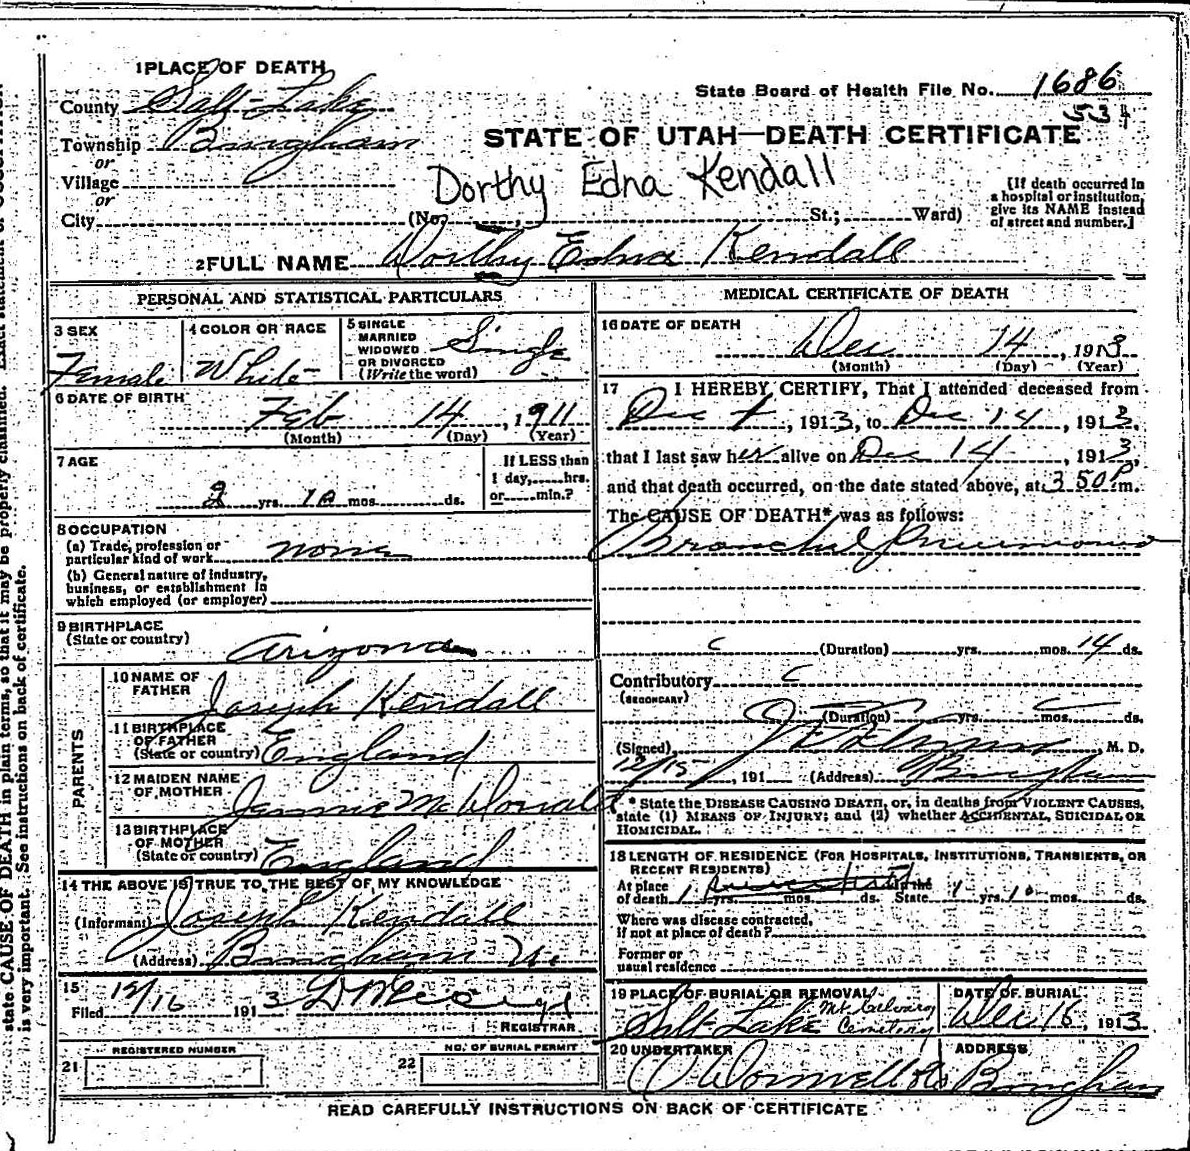 1 PLACE OF DEATH
County Salt Lake
State Board of Health File No. 1686
534
Township Bingham
STATE OF UTAH—DEATH CERTIFICATE
or
Village
Dorthy Edna Kendall
or
City (No. St.; Ward)
[If death occurred in
a hospital or institution,
give its NAME instead
of street and number.]
2 FULL NAME Dorthy Edna Kendall
PERSONAL AND STATISTICAL PARTICULARS
3 SEX
Female
4 COLOR OR RACE
White
5 SINGLE
MARRIED
WIDOWED
OR DIVORCED
(Write the word)
Single
6 DATE OF BIRTH
Feb 14, 1911
(Month) (Day) (Year)
7 AGE
2 yrs. 10 mos. ds.
If LESS than
1 day, hrs.
or min.?
8 OCCUPATION
(a) Trade, profession or
particular kind of work none
(b) General nature of industry,
business, or establishment in
which employed (or employer)
9 BIRTHPLACE
(State or country)
Arizona
PARENTS
10 NAME OF
FATHER
Joseph Kendall
11 BIRTHPLACE
OF FATHER
(State or country) England
12 MAIDEN NAME
OF MOTHER
Jennie McDonald
13 BIRTHPLACE
OF MOTHER
(State or country) England
14 THE ABOVE IS TRUE TO THE BEST OF MY KNOWLEDGE
(Informant) Joseph Kendall
(Address) Bingham
15
Filed 12/16 1913
REGISTRAR
21 REGISTERED NUMBER
22 NO. OF BURIAL PERMIT
MEDICAL CERTIFICATE OF DEATH
16 DATE OF DEATH
Dec 14, 1913
(Month) (Day) (Year)
17 I HEREBY CERTIFY, That I attended deceased from
Dec , 1913, to Dec 14, 1913,
that I last saw her alive on Dec 14, 1913,
and that death occurred, on the date stated above, at 3 50 P m.
The CAUSE OF DEATH* was as follows:
Bronchial Pneumonia
(Duration) yrs. mos. 14 ds.
Contributory
(SECONDARY)
(Duration) yrs. mos. ds.
(Signed) M. D.
12/15, 191 (Address) Bingham
* State the DISEASE CAUSING DEATH, or, in deaths from VIOLENT CAUSES,
state (1) MEANS OF INJURY; and (2) whether ACCIDENTAL, SUICIDAL OR
HOMICIDAL.
18 LENGTH OF RESIDENCE (FOR HOSPITALS, INSTITUTIONS, TRANSIENTS, OR
RECENT RESIDENTS)
At place In the
of death 1 yrs. mos. ds. State 1 yrs. 10 mos. ds.
Where was disease contracted,
if not at place of death?
Former or
usual residence
19 PLACE OF BURIAL OR REMOVAL
Salt Lake Mt Calvary
Cemetery
DATE OF BURIAL
Dec 16, 1913
20 UNDERTAKER
ADDRESS
Bingham
READ CAREFULLY INSTRUCTIONS ON BACK OF CERTIFICATE
state CAUSE OF DEATH in plain terms, so that it may be properly classified. Exact statement of OCCUPATION
is very important. See instructions on back of certificate.